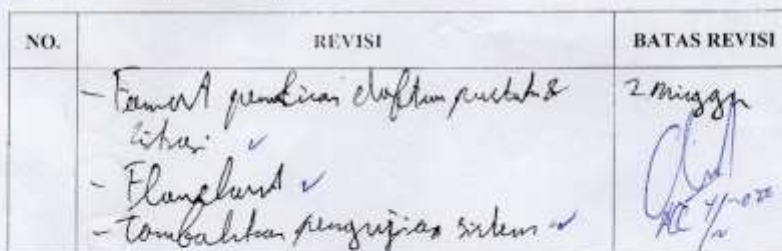 NO. REVISI BATAS REVISI
- Format penulisan daftar pustaka & 2 minggu
sitasi ✓
- Flowchart ✓
- Tambahkan pengujian sistem ✓
ACC